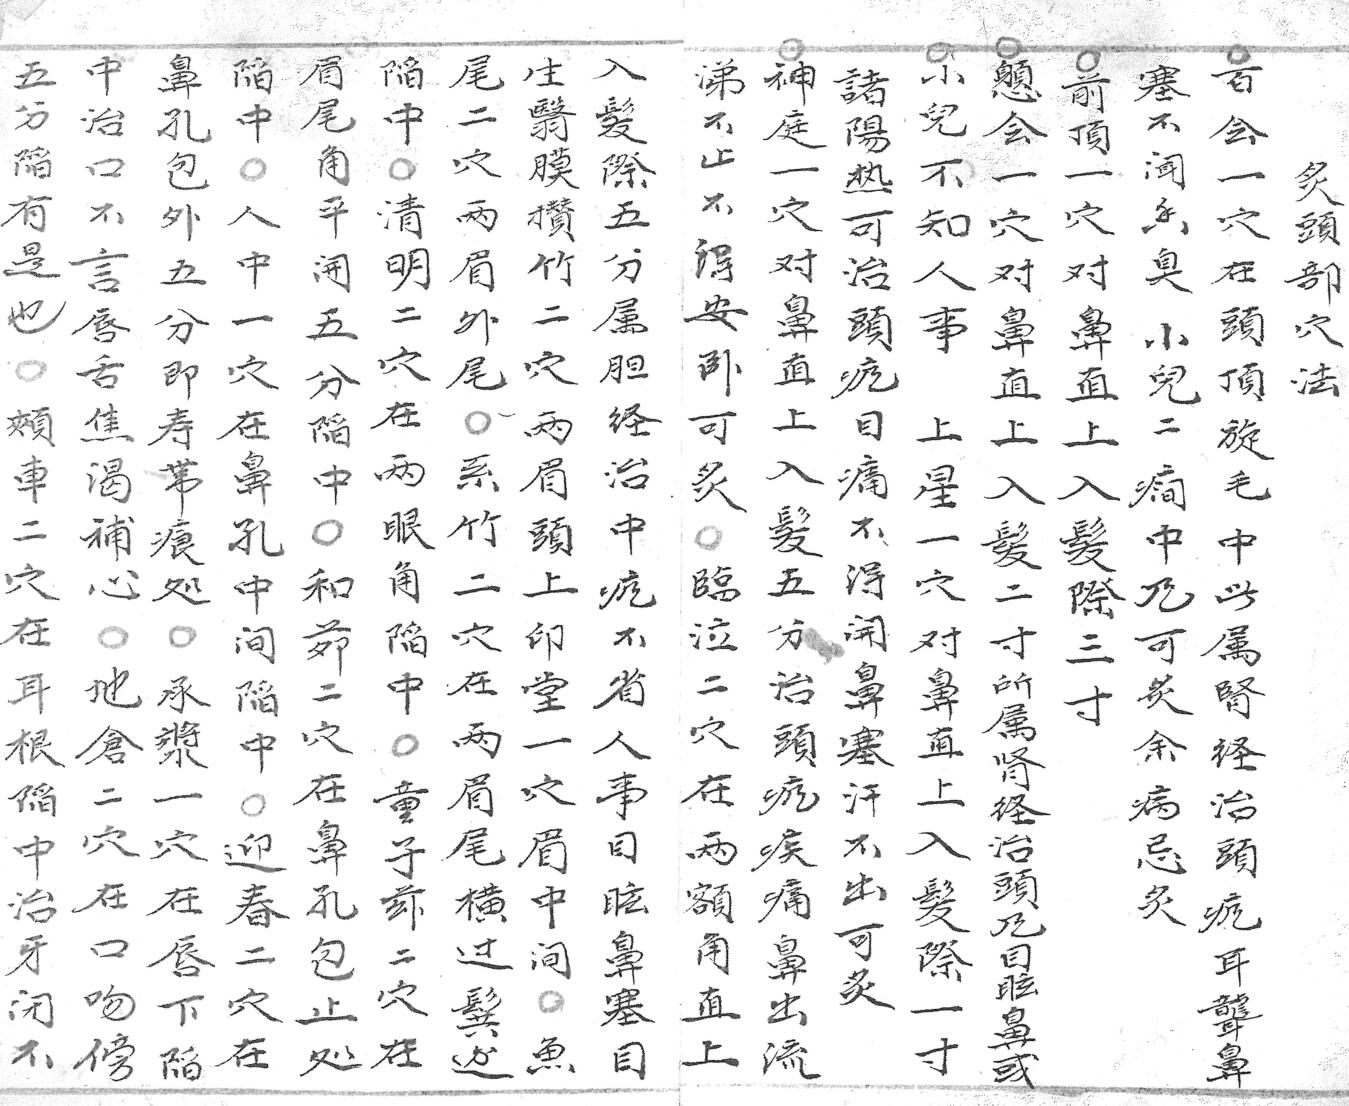 炙頭部穴法
○百会一穴在頭頂旋毛中此属腎経治頭疯耳聾鼻
塞不闻香臭 小兒二癎中及可炙余病忌炙
○前頂一穴对鼻直上入髪際三寸
○顖会一穴对鼻直上入髪二寸所属肾経治頭及目眩鼻或
○小兒不知人事 上星一穴对鼻直上入髪際一寸
諸陽热可治頭疯目痛不淂開鼻塞汗不出可炙
○神庭一穴对鼻直上入髪五分治頭疯疾痛鼻出流
涕不止不淂安卧可炙○臨泣二穴在両額角直上
入髪際五分属胆経治中疯不省人事目眩鼻塞目
生翳膜攅竹二穴両眉頭上印堂一穴眉中间○魚
尾二穴両眉外尾○系竹二穴在両眉尾横过鬓边
陷中○清明二穴在両眼角陷中○童子茆二穴在
眉尾角平闹五分陷中○和茆二穴在鼻孔包止处
陷中○人中一穴在鼻孔中间陷中○迎春二穴在
鼻孔包外五分即寿带痕处○承漿一穴在唇下陷
中治口不言唇舌焦渴補心○地倉二穴在口吻傍
五分陷有是也○頰車二穴在耳根陷中治牙闭不